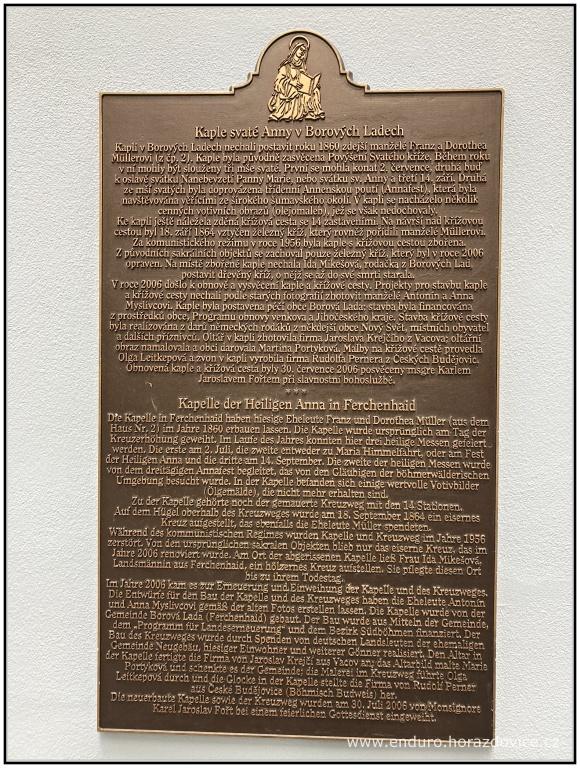 Kaple svaté Anny v Borových Ladech
Kapli v Borových Ladech nechali postavit roku 1860 zdejší manželé Franz a Dorothea
Müllerovi (z čp. 2). Kaple byla původně zasvěcena Povýšení Svatého kříže. Během roku
v ní mohly být slouženy tři mše svaté. První se mohla konat 2. července, druhá buď
k oslavě svátku Nanebevzetí Panny Marie, nebo svátku sv. Anny a třetí 14. září. Druhá
ze mší svatých byla doprovázena třídenní Annenskou poutí (Annafest), která byla
navštěvována věřícími ze širokého šumavského okolí. V kapli se nacházelo několik
cenných votivních obrazů (olejomaleb), jež se však nedochovaly.
Ke kapli ještě náležela zděná křížová cesta se 14 zastaveními. Na návrší nad křížovou
cestou byl 18. září 1864 vztyčen železný kříž, který rovněž pořídili manželé Müllerovi.
Za komunistického režimu v roce 1956 byla kaple s křížovou cestou zbořena.
Z původních sakrálních objektů se zachoval pouze železný kříž, který byl v roce 2006
opraven. Na místě zbořené kaple nechala Ida Mikešová, rodačka z Borových Lad,
postavit dřevěný kříž, o nějž se až do své smrti starala.
V roce 2006 došlo k obnově a vysvěcení kaple a křížové cesty. Projekty pro stavbu kaple
a křížové cesty nechali podle starých fotografií zhotovit manželé Antonín a Anna
Myslivcovi. Kaple byla postavena péčí obce Borová Lada; stavba byla financována
z prostředků obce, Programu obnovy venkova a Jihočeského kraje. Stavba křížové cesty
byla realizována z darů německých rodáků z někdejší obce Nový Svět, místních obyvatel
a dalších příznivců. Oltář v kapli zhotovila firma Jaroslava Krejčího z Vacova; oltářní
obraz namalovala a obci darovala Martina Portyková. Malby na křížové cestě provedla
Olga Leitkepová a zvon v kapli vyrobila firma Rudolfa Pernera z Českých Budějovic.
Obnovená kaple a křížová cesta byly 30. července 2006 posvěceny msgre Karlem
Jaroslavem Fořtem při slavnostní bohoslužbě.
***
Kapelle der Heiligen Anna in Ferchenhaid
Die Kapelle in Ferchenhaid haben hiesige Eheleute Franz und Dorothea Müller (aus dem
Haus Nr. 2) im Jahre 1860 erbauen lassen. Die Kapelle wurde ursprünglich am Tag der
Kreuzerhöhung geweiht. Im Laufe des Jahres konnten hier drei heilige Messen gefeiert
werden. Die erste am 2. Juli, die zweite entweder zu Maria Himmelfahrt, oder am Fest
der Heiligen Anna und die dritte am 14. September. Die zweite der heiligen Messen wurde
von dem dreitägigen Annafest begleitet, das von den Gläubigen der böhmerwälderischen
Umgebung besucht wurde. In der Kapelle befanden sich einige wertvolle Votivbilder
(Ölgemälde), die nicht mehr erhalten sind.
Zu der Kapelle gehörte noch der gemauerte Kreuzweg mit den 14 Stationen.
Auf dem Hügel oberhalb des Kreuzweges wurde am 18. September 1864 ein eisernes
Kreuz aufgestellt, das ebenfalls die Eheleute Müller spendeten.
Während des kommunistischen Regimes wurden Kapelle und Kreuzweg im Jahre 1956
zerstört. Von den ursprünglichen sakralen Objekten blieb nur das eiserne Kreuz, das im
Jahre 2006 renoviert wurde. Am Ort der abgerissenen Kapelle ließ Frau Ida Mikešová,
Landsmännin aus Ferchenhaid, ein hölzernes Kreuz aufstellen. Sie pflegte diesen Ort
bis zu ihrem Todestag.
Im Jahre 2006 kam es zur Erneuerung und Einweihung der Kapelle und des Kreuzweges.
Die Entwürfe für den Bau der Kapelle und des Kreuzweges haben die Eheleute Antonín
und Anna Myslivcovi gemäß der alten Fotos erstellen lassen. Die Kapelle wurde von der
Gemeinde Borová Lada (Ferchenhaid) gebaut. Der Bau wurde aus Mitteln der Gemeinde,
dem „Programm für Landeserneuerung" und dem Bezirk Südböhmen finanziert. Der
Bau des Kreuzweges wurde durch Spenden von deutschen Landsleuten der ehemaligen
Gemeinde Neugebäu, hiesiger Einwohner und weiterer Gönner realisiert. Den Altar in
der Kapelle fertigte die Firma von Jaroslav Krejčí aus Vacov an; das Altarbild malte Marie
Portyková und schenkte es der Gemeinde; die Malerei im Kreuzweg führte Olga
Leitkepová durch und die Glocke in der Kapelle stellte die Firma von Rudolf Perner
aus České Budějovice (Böhmisch Budweis) her.
Die neuerbaute Kapelle sowie der Kreuzweg wurden am 30. Juli 2006 von Monsignore
Karel Jaroslav Fořt bei einem feierlichen Gottesdienst eingeweiht.
www.enduro.horazdovice.cz